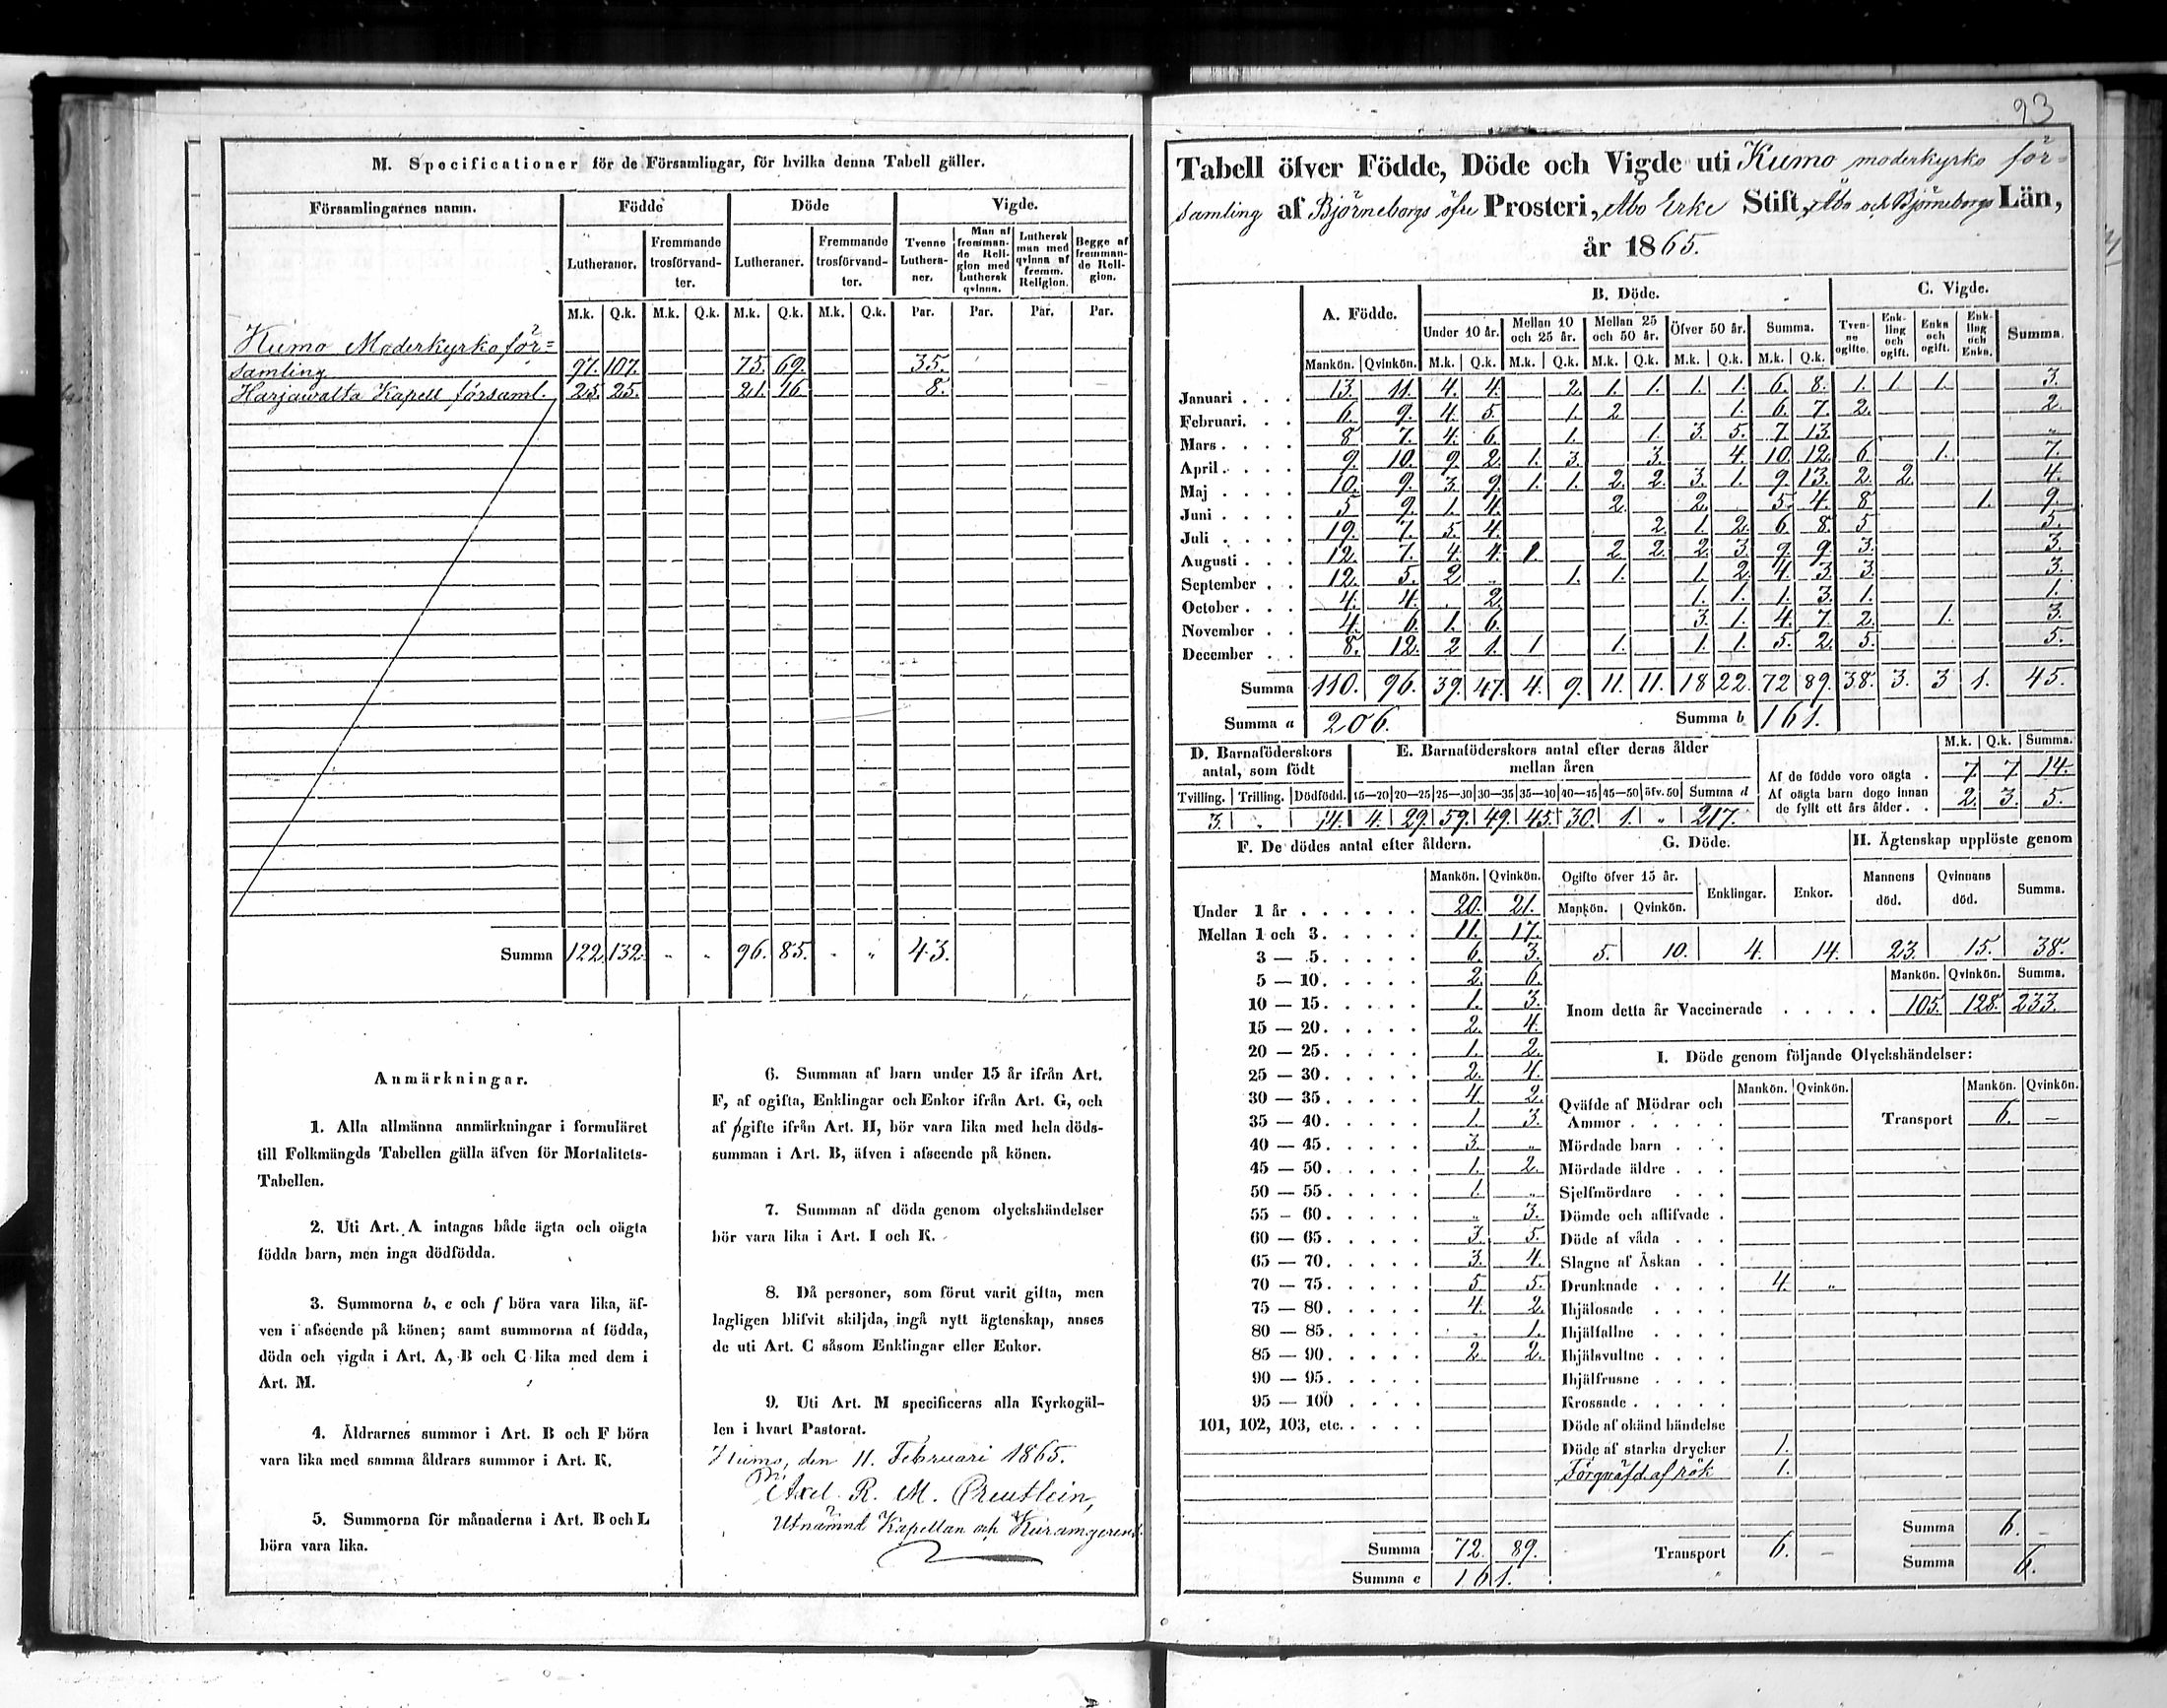 M. Specificationer för de Församlingar, för hvilka denna Tabell gäller.
Församlingarnes namn. Födde Döde Vigde.
Lutheraner. Fremmande trosförvandter. Lutheraner. Fremmande trosförvandter. Tvenne Lutheraner. Man af fremmande Religion med Luthersk qvinna. Luthersk man med qvinna af fremm. Religion. Begge af fremmande Religion.
M.k. Q.k. M.k. Q.k. M.k. Q.k. M.k. Q.k. Par. Par. Par. Par.
Kumo Moderkyrko för=
samling 97. 107. 75. 69. 35.
Harjawalta Kapell församl. 25. 25. 21. 16. 8.
Summa 122. 132. „ „ 96. 85. „ „ 43.
Anmärkningar.
1. Alla allmänna anmärkningar i formuläret
till Folkmängds Tabellen gälla äfven för Mortalitets-
Tabellen.
2. Uti Art. A intagas både ägta och oägta
födda barn, men inga dödfödda.
3. Summorna b, c och f böra vara lika, äf-
ven i afseende på könen; samt summorna af födda,
döda och vigda i Art. A, B och C lika med dem i
Art. M.
4. Äldrarnes summor i Art. B och F böra
vara lika med samma åldrars summor i Art. K.
5. Summorna för månaderna i Art. B och L
böra vara lika.
6. Summan af barn under 15 år ifrån Art.
F, af ogifta, Enklingar och Enkor ifrån Art. G, och
af gifte ifrån Art. H, bör vara lika med hela döds-
summan i Art. B, äfven i afseende på könen.
7. Summan af döda genom olyckshändelser
bör vara lika i Art. I och K.
8. Då personer, som förut varit gifta, men
lagligen blifvit skiljda, ingå nytt ägtenskap, anses
de uti Art. C såsom Enklingar eller Enkor.
9. Uti Art. M specificeras alla Kyrkogäl-
len i hvart Pastorat.
Kumo, den 11. Februari 1865.
Axel R. M.
Utnämnd Kapellan och
93
Tabell öfver Födde, Döde och Vigde uti Kumo moderkyrko för=
samling af Björneborgs öfre Prosteri, Åbo Erke Stift, Åbo och Björneborgs Län,
år 1865.
A. Födde. B. Döde. C. Vigde.
Under 10 år. Mellan 10 och 25 år. Mellan 25 och 50 år. Öfver 50 år. Summa. Tvenne ogifte. Enkling och ogift. Enka och ogift. Enkling och Enka. Summa.
Mankön. Qvinkön. M.k. Q.k. M.k. Q.k. M.k. Q.k. M.k. Q.k. M.k. Q.k.
Januari . . . 13. 11. 4. 4. 2. 1. 1. 1. 1. 6. 8. 1. 1 1. 3.
Februari. . . 6. 9. 4. 5. 1. 2 1. 6. 7. 2. 2.
Mars . . . . 8 7. 4. 6. 1. 1. 3. 5. 7. 13. „
April . . . . 9. 10. 9. 2. 1. 3. 3. 4. 10. 12. 6. 1. 7.
Maj . . . . 10. 9. 3. 9. 1. 1. 2. 2. 3. 1. 9. 13. 2. 2. 4.
Juni . . . . 5 9. 1. 4. 2. 2. 5. 4. 8 1. 9.
Juli . . . . 19. 7. 5. 4. 2. 1. 2. 6. 8. 5 5.
Augusti . . . 12. 7. 4. 4. 1. 2. 2. 2. 3. 9. 9. 3. 3.
September . . 12. 5. 2 „ 1. 1. 1. 2. 4. 3. 3. 3.
October . . . 4. 4. . 2. 1. 1. 1. 3. 1. 1.
November . . 4. 6. 1. 6. 3. 1. 4. 7. 2. 1. 3.
December . . 8. 12. 2 1. 1 1. 1. 1. 5. 2. 5. 5.
Summa 110. 96. 39. 47. 4. 9. 11. 11. 18 22. 72 89. 38. 3. 3 1. 45.
Summa a 206. Summa b 161.
D. Barnaföderskors antal, som födt E. Barnaföderskors antal efter deras ålder mellan åren M.k. Q.k. Summa.
Af de födde voro oägta . 7. 7. 14.
Af oägta barn dogo innan de fyllt ett års ålder . . 2. 3. 5.
Tvilling. Trilling. Dödfödd. 15—20 20—25 25—30 30—35 35—40 40—45 45—50 öfv. 50 Summa d
3. „ 14. 4. 29. 59. 49. 45. 30. 1. „ 217.
F. De dödes antal efter åldern.
Mankön. Qvinkön.
Under 1 år . . . . . . 20. 21.
Mellan 1 och 3. . . . . 11. 17.
3 — 5. . . . . 6. 3.
5 — 10. . . . . 2. 6.
10 — 15. . . . . 1. 3.
15 — 20. . . . . 2. 4.
20 — 25. . . . . 1. 2.
25 — 30. . . . . 2. 4.
30 — 35. . . . . 4. 2.
35 — 40. . . . . 1. 3.
40 — 45. . . . . 3. „
45 — 50. . . . . 1. 2.
50 — 55. . . . . 1. „
55 — 60. . . . . „ 3.
60 — 65. . . . . 3. 5.
65 — 70. . . . . 3. 4.
70 — 75. . . . . 5. 5.
75 — 80. . . . . 4. 2.
80 — 85. . . . . „ 1.
85 — 90. . . . . 2 2.
90 — 95. . . . .
95 — 100 . . . .
101, 102, 103, etc. . . . .
Summa 72. 89.
Summa c 161.
G. Döde. H. Ägtenskap upplöste genom
Ogifte öfver 15 år. Enklingar. Enkor. Mannens död. Qvinnans död. Summa.
Mankön. Qvinkön.
5. 10. 4. 14. 23. 15. 38.
Mankön. Qvinkön. Summa.
Inom detta år Vaccinerade . . . . . 105. 128. 233.
I. Döde genom följande Olyckshändelser:
Mankön. Qvinkön. Mankön. Qvinkön.
Qväfde af Mödrar och
Ammor . . . . . Transport 6. —
Mördade barn . . .
Mördade äldre . . .
Sjelfmördare . . .
Dömde och aflifvade .
Döde af våda . . .
Slagne af Åskan . .
Drunknade . . . . 4. „
Ihjälosade . . . .
Ihjälfallne . . . .
Ihjälsvultne . . . .
Ihjälfrusne . . . .
Krossade . . . . .
Döde af okänd händelse
Döde af starka drycker 1.
Förqväfd af rök 1.
Summa 6. —
Transport 6. — Summa 6.